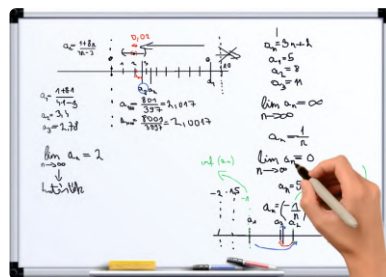 aₙ = 1+8n / 4n-3
0,02
0 1 2 3
a₁ = 1+8·1 / 4·1-3
a₂ = 3,3
a₃ = 2,78
a₁₀₀ = 801/397 = 2,017
a₁₀₀₀ = 8001/3997 = 2,0017
lim aₙ = 2
n→∞
aₙ = 3n+2
a₁ = 5
a₂ = 8
a₃ = 11
lim aₙ = ∞
n→∞
aₙ = 1/n
lim aₙ = 0
n→∞
inf (aₙ)
aₙ = 5
aₙ = (-1/n)
-2 -1,5
a₁ a₃ a₂